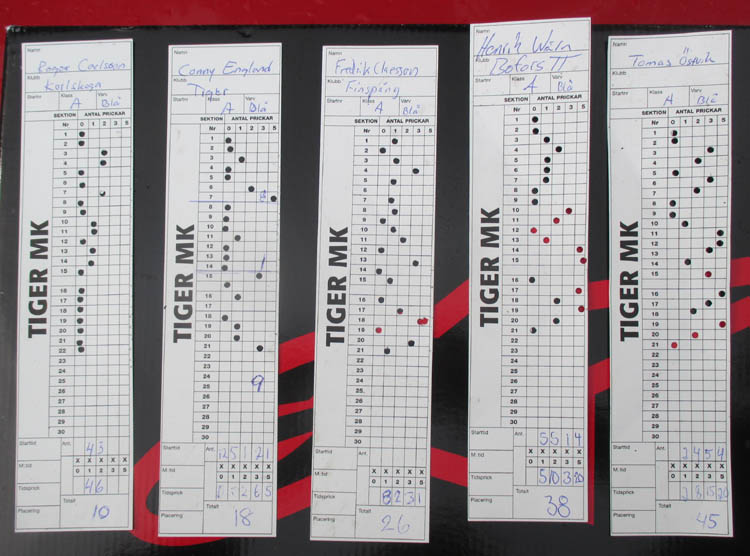 Namn
Roger Carlsson
Klubb
Karlskoga
Startnr Klass Varv
A Blå
SEKTION ANTAL PRICKAR
Nr 0 1 2 3 5
1
2
3
4
5
6
7
8
9
10
11
12
13
14
15
16
17
18
19
20
21
22
23
24
25
26
27
28
29
30
TIGER MK
Starttid Ant.
X X X X X
M: tid 0 1 2 3 5
Tidsprick 46
Placering Totalt
10
Namn
Conny England
Klubb
Tiger
Startnr Klass Varv
A Blå
SEKTION ANTAL PRICKAR
Nr 0 1 2 3 5
1
2
3
4
5
6
7
8
9
10
11
12
13
14
15
16
17
18
19
20
21
22
23
24
25
26
27
28
29
30
9
TIGER MK
Starttid Ant. 12 5 1 2 1
X X X X X
M: tid 0 1 2 3 5
Tidsprick 2 6 5
Placering Totalt
18
Namn
Klubb
Finspång
Startnr Klass Varv
A Blå
SEKTION ANTAL PRICKAR
Nr 0 1 2 3 5
1
2
3
4
5
6
7
8
9
10
11
12
13
14
15
16
17
18
19
20
21
22
23
24
25
26
27
28
29
30
TIGER MK
Starttid Ant.
X X X X X
M: tid 0 1 2 3 5
Tidsprick 8 2 3 1
Placering Totalt
26
Namn
Henrik
Klubb
Bofors
Startnr Klass Varv
A Blå
SEKTION ANTAL PRICKAR
Nr 0 1 2 3 5
1
2
3
4
5
6
7
8
9
10
11
12
13
14
15
16
17
18
19
20
21
22
23
24
25
26
27
28
29
30
TIGER MK
Starttid Ant. 5 5 1 4
X X X X X
M: tid 0 1 2 3 5
Tidsprick 5 10 3 20
Placering Totalt
38
Namn
Tomas Östvik
Klubb
Startnr Klass Varv
A Blå
SEKTION ANTAL PRICKAR
Nr 0 1 2 3 5
1
2
3
4
5
6
7
8
9
10
11
12
13
14
15
16
17
18
19
20
21
22
23
24
25
26
27
28
29
30
TIGER MK
Starttid Ant. 2 4 5 4
X X X X X
M: tid 0 1 2 3 5
Tidsprick 2 8 15 20
Placering Totalt
45